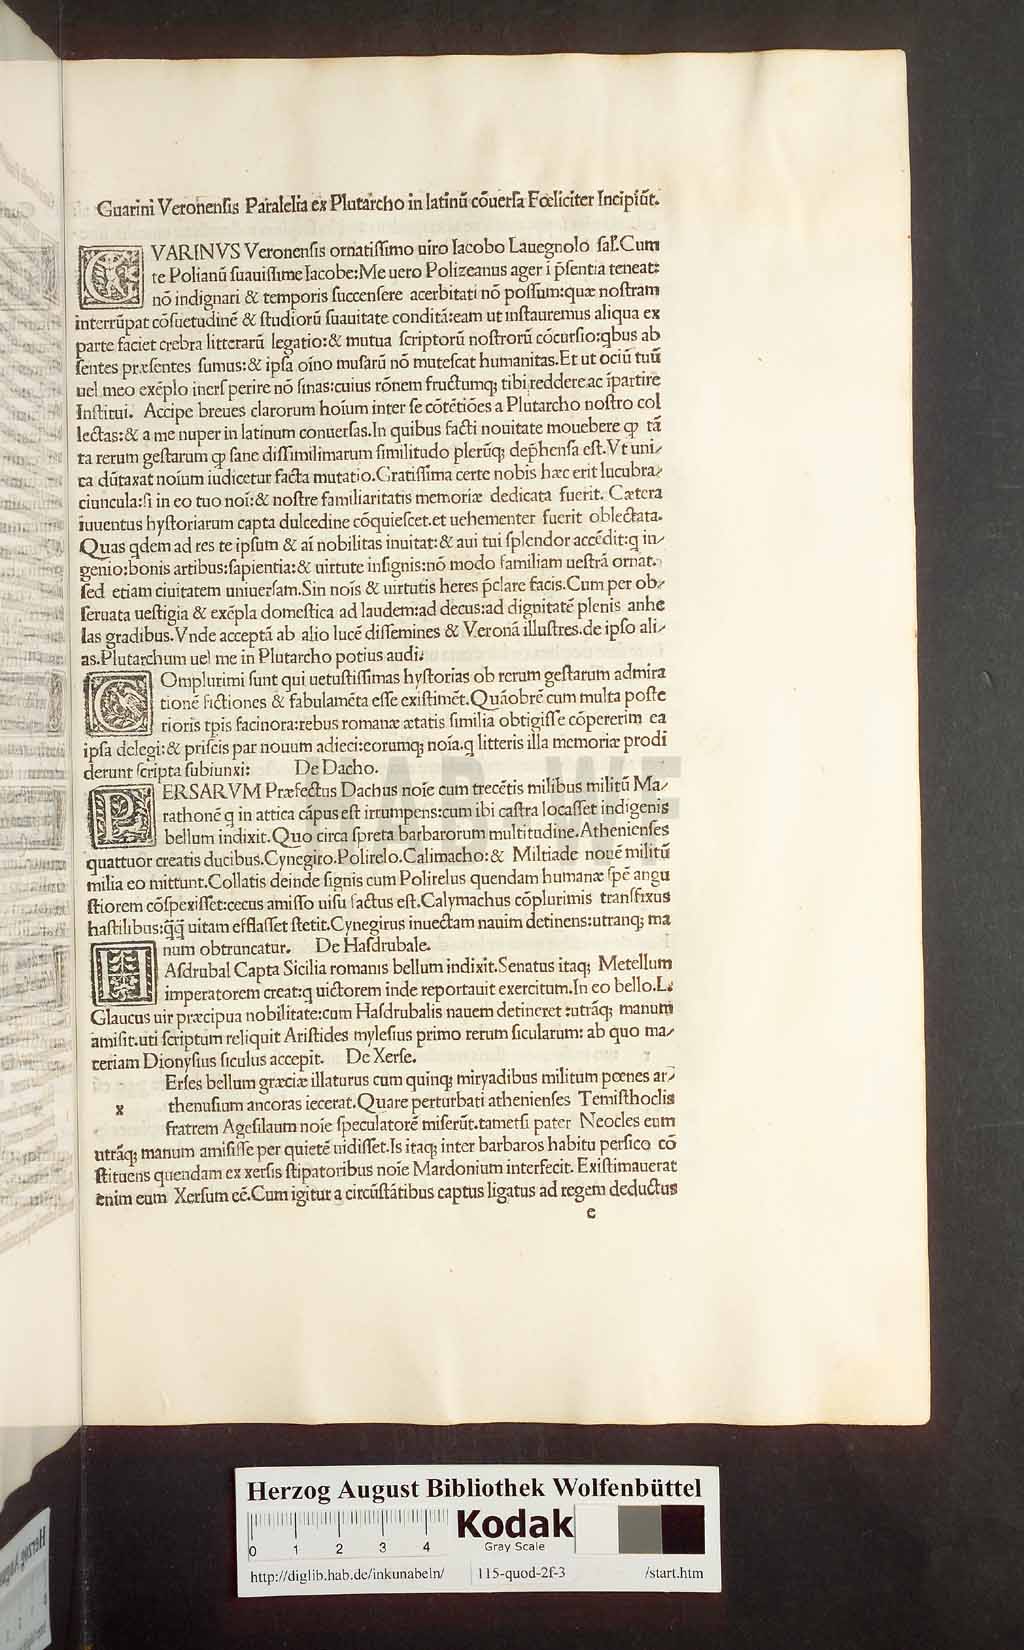 Guarini Veronensis Paralelia ex Plutarcho in latinū cōuersa Fœliciter Incipiūt.
GVARINVS Veronensis ornatissimo uiro Iacobo Lauegnolo sal. Cum
te Polianū suauissime Iacobe: Me uero Polizeanus ager i p̄sentia teneat:
nō indignari & temporis succensere acerbitati nō possum: quæ nostram
interrūpat cōsuetudinē & studiorū suauitate conditā: eam ut instauremus aliqua ex
parte faciet crebra litterarū legatio: & mutua scriptorū nostrorū cōcursio: qbus ab
sentes præsentes sumus: & ipsa oīno musarū nō mutescat humanitas. Et ut ociū tuū
uel meo exēplo iners perire nō sinas: cuius rōnem fructumq; tibi reddere ac īpartire
Institui. Accipe breues clarorum hoīum inter se cōtētiōes a Plutarcho nostro col
lectas: & a me nuper in latinum conuersas. In quibus facti nouitate mouebere ꝙ tā
ta rerum gestarum ꝙ sane dissimilimarum similitudo plerūq; dep̄hensa est. Vt uni/
ca dūtaxat noīum iudicetur facta mutatio. Gratissima certe nobis hæc erit lucubra/
ciuncula: si in eo tuo noī: & nostre familiaritatis memoriæ dedicata fuerit. Cætera
iuuentus hystoriarum capta dulcedine cōquiescet. et uehementer fuerit oblectata.
Quas qdem ad res te ipsum & aī nobilitas inuitat: & aui tui splendor accēdit: q in/
genio: bonis artibus: sapientia: & uirtute insignis: nō modo familiam uestrā ornat.
sed etiam ciuitatem uniuersam. Sin noīs & uirtutis heres p̄clare facis. Cum per ob/
seruata uestigia & exēpla domestica ad laudem: ad decus: ad dignitatē plenis anhe
las gradibus. Vnde acceptā ab alio lucē dissemines & Veronā illustres. de ipso ali/
as. Plutarchum uel me in Plutarcho potius audi:
COmplurimi sunt qui uetustissimas hystorias ob rerum gestarum admira
tionē fictiones & fabulamēta esse existimēt. Quāobrē cum multa poste
rioris tpis facinora: rebus romanæ ætatis similia obtigisse cōpererim ea
ipsa delegi: & priscis par nouum adieci: eorumq; noīa. q litteris illa memoriæ prodi
derunt scripta subiunxi: De Dacho.
PERSARVM Præfectus Dachus noīe cum trecētis milibus militū Ma/
rathonē q in attica cāpus est irrumpens: cum ibi castra locasset indigenis
bellum indixit. Quo circa spreta barbarorum multitudine. Athenienses
quattuor creatis ducibus. Cynegiro. Polirelo. Calimacho: & Miltiade nouē militū
milia eo mittunt. Collatis deinde signis cum Polirelus quendam humanæ spē angu
stiorem cōspexisset: cecus amisso uisu factus est. Calymachus cōplurimis transfixus
hastilibus: q̄q̄ uitam efflasset stetit. Cynegirus inuectam nauim detinens: utranq; ma
num obtruncatur. De Hasdrubale.
HAsdrubal Capta Sicilia romanis bellum indixit. Senatus itaq; Metellum
imperatorem creat: q uictorem inde reportauit exercitum. In eo bello. L.
Glaucus uir præcipua nobilitate: cum Hasdrubalis nauem detineret: utrāq; manum
amisit. uti scriptum reliquit Aristides mylesius primo rerum sicularum: ab quo ma/
teriam Dionysius siculus accepit. De Xerse.
x Erses bellum græciæ illaturus cum quinq; miryadibus militum pœnes ar/
thenusium ancoras iecerat. Quare perturbati athenienses Temisthoclis
fratrem Agesilaum noīe speculatorē miserūt. tametsi pater Neocles eum
utrāq; manum amisisse per quietē uidisset. Is itaq; inter barbaros habitu persico cō
stituens quendam ex xersis stipatoribus noīe Mardonium interfecit. Existimauerat
enim eum Xersum eē. Cum igitur a circūstātibus captus ligatus ad regem deductus
e
HAB-WF
Herzog August Bibliothek Wolfenbüttel
0 1 2 3 4
Kodak
Gray Scale
http://diglib.hab.de/inkunabeln/ 115-quod-2f-3 /start.htm